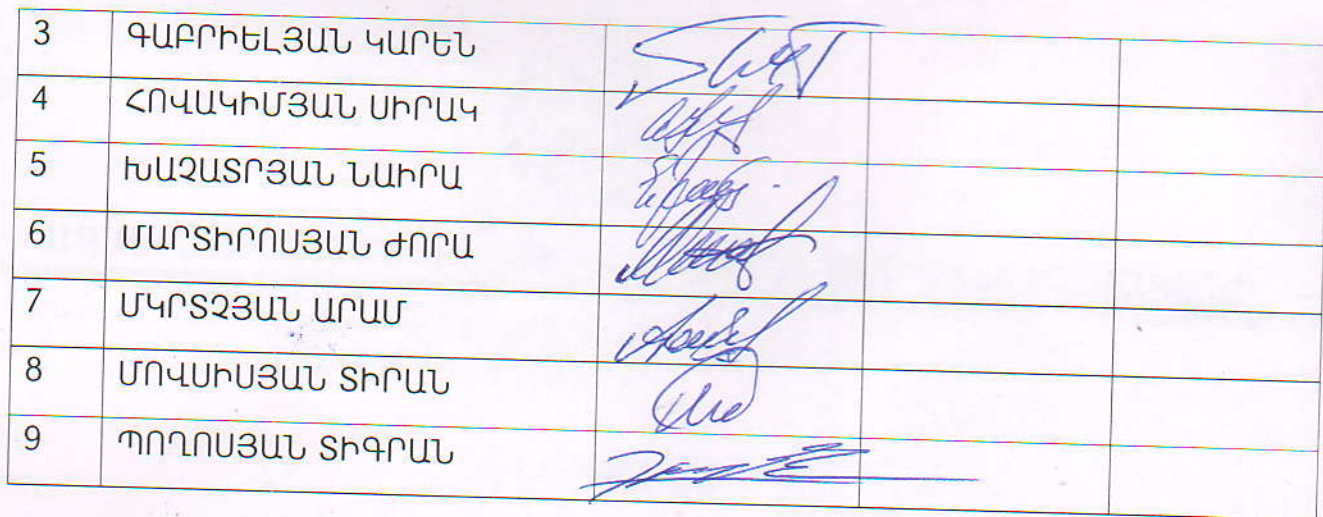 3 ԳԱԲՐԻԵԼՅԱՆ ԿԱՐԵՆ
4 ՀՈՎԱԿԻՄՅԱՆ ՍԻՐԱԿ
5 ԽԱՉԱՏՐՅԱՆ ՆԱԻՐԱ
6 ՄԱՐՏԻՐՈՍՅԱՆ ԺՈՐԱ
7 ՄԿՐՏՉՅԱՆ ԱՐԱՄ
8 ՄՈՎՍԻՍՅԱՆ ՏԻՐԱՆ
9 ՊՈՂՈՍՅԱՆ ՏԻԳՐԱՆ